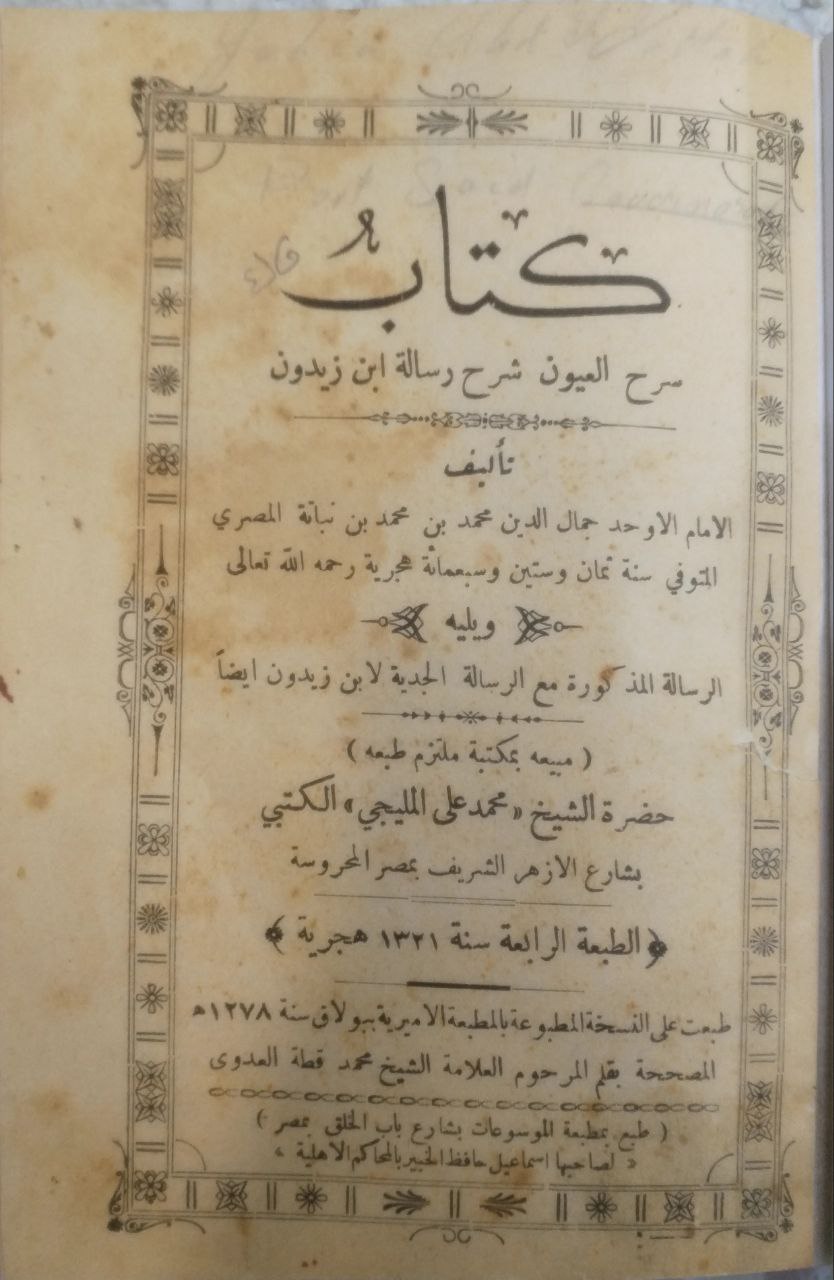 كتاب
سرح العيون شرح رسالة ابن زيدون
تأليف
الامام الاوحد جمال الدين محمد بن محمد بن نباتة المصري
المتوفي سنة ثمان وستين وسبعمائة هجرية رحمه الله تعالى
ويليه
الرسالة المذكورة مع الرسالة الجدية لابن زيدون ايضاً
( مبيعه بمكتبة ملتزم طبعه )
حضرة الشيخ « محمد على المليجي » الكتبي
بشارع الازهر الشريف بمصر المحروسة
﴿ الطبعة الرابعة سنة ١٣٢١ هجرية ﴾
طبعت على النسخة المطبوعة بالمطبعة الاميرية ببولاق سنة ١٢٧٨ه
المصححة بقلم المرحوم العلامة الشيخ محمد قطة العدوى
( طبع بمطبعة الموسوعات بشارع باب الخلق بمصر )
« لصاحبها اسماعيل حافظ الخبير بالمحاكم الاهلية »